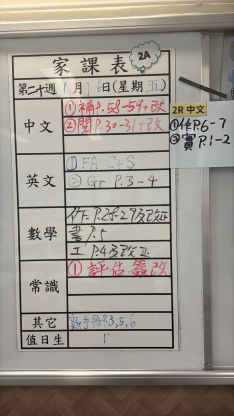 家課表 2A
第二十週 1月16日(星期五)
中文
①補P.58-59+改
②閱P.30-31+改
2R 中文
①作P.6-7
②實P.1-2
英文
① FA C+S
② Gr P.3-4
數學
作 P.28-29及改正
書 P.5
工 P.4及改正
常識
① 評估簽改
其它
P.3,5,6
值日生